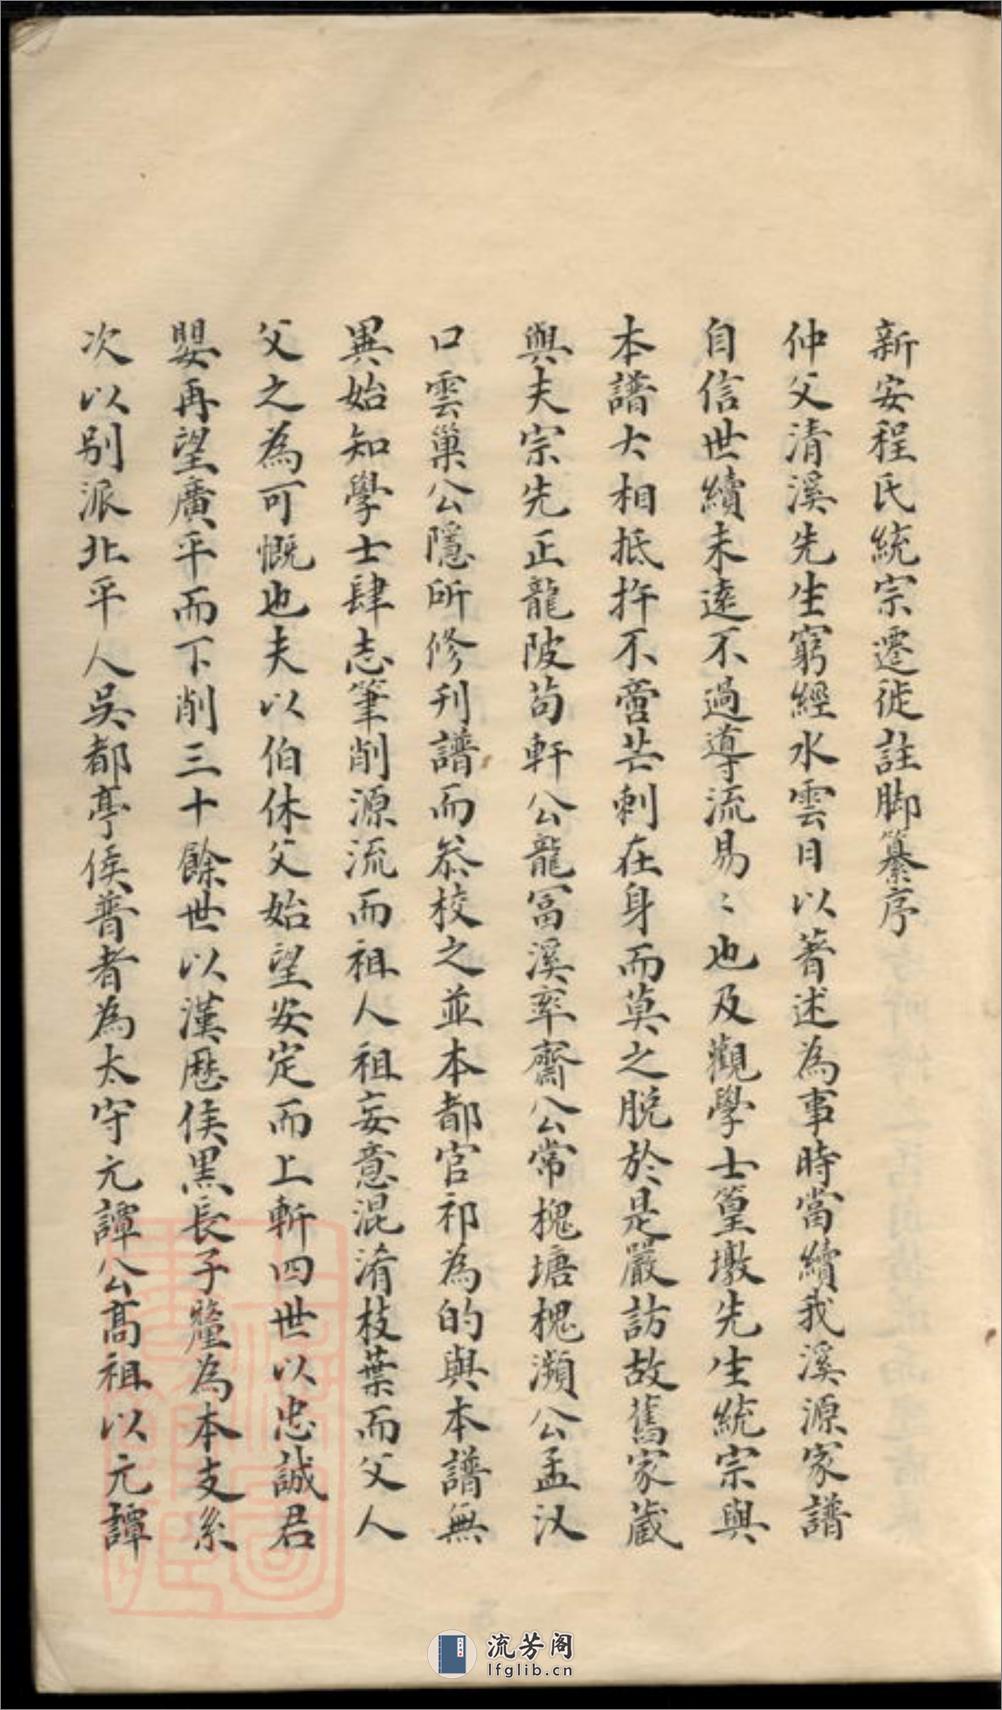 新安程氏統宗遷徙註脚纂序
仲父清溪先生窮經水雲日以著述為事時當續我溪源家譜
自信世續未遠不過導流易〻也及觀學士篁墩先生統宗與
本譜大相抵捍不啻芒刺在身而莫之脫於是嚴訪故舊家藏
與夫宗先正龍陂苟軒公龍冨溪率齋公常槐塘槐濒公孟汉
口雲巢公隱所修刊譜而叅校之並本都官祁為的與本譜無
異始知學士肆志筆削源流而祖人祖妄意混淆枝葉而父人
父之為可慨也夫以伯休父始望安定而上斬四世以忠誠君
嬰再望廣平而下削三十餘世以漢歷侯黑長子釐為本支糸
次以别派北平人吳都亭侯普者為太守元譚公髙祖以元譚
流芳阁
lfglib.cn